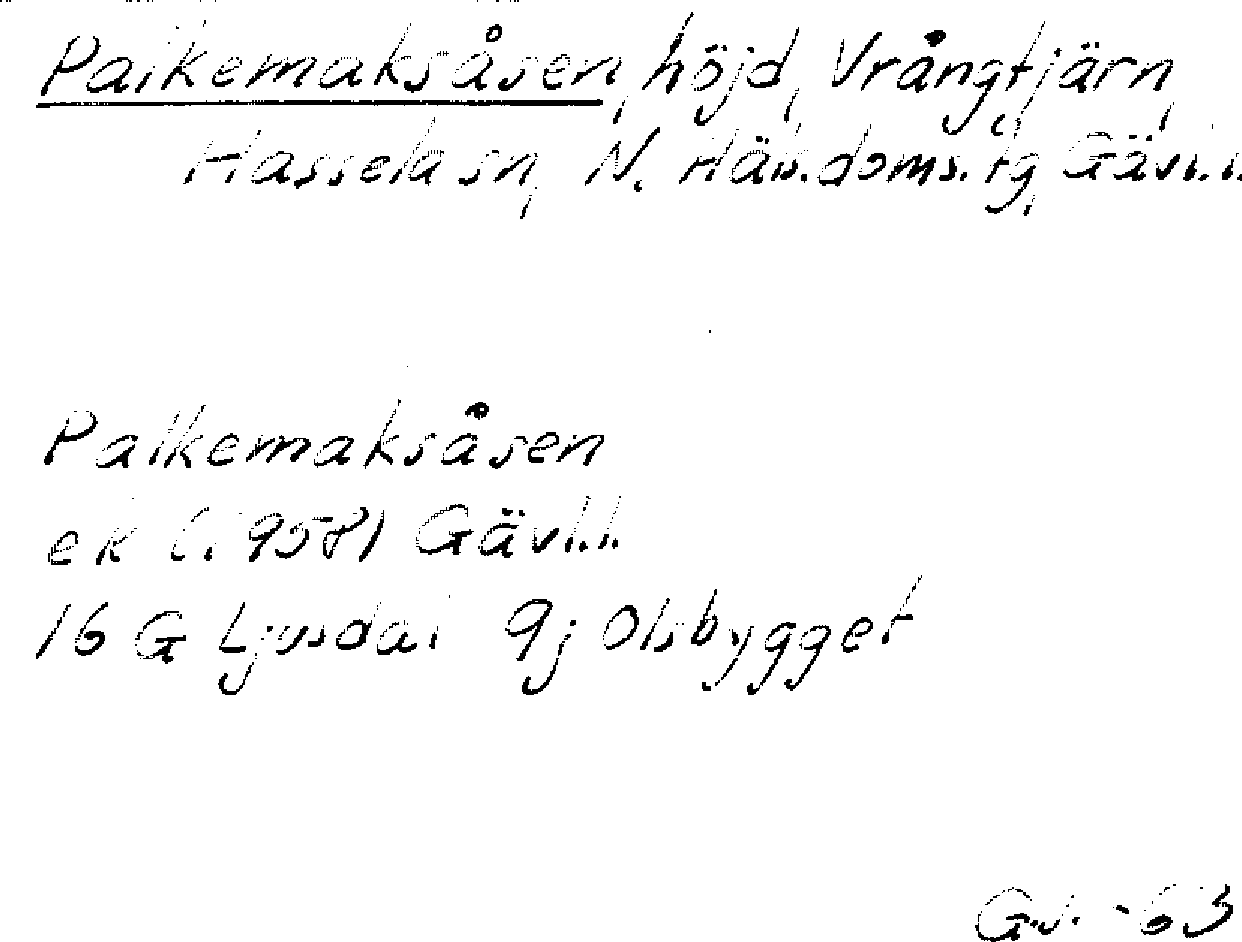 Palkemaksåsen, höjd, Vrångtjärn,
Hassela sn, N. Häls.doms.tg, Gävl.l.
Palkemaksåsen
ek (1958) Gävl.l.
16 G Ljusdal 9j Olsbygget
G.J. -63